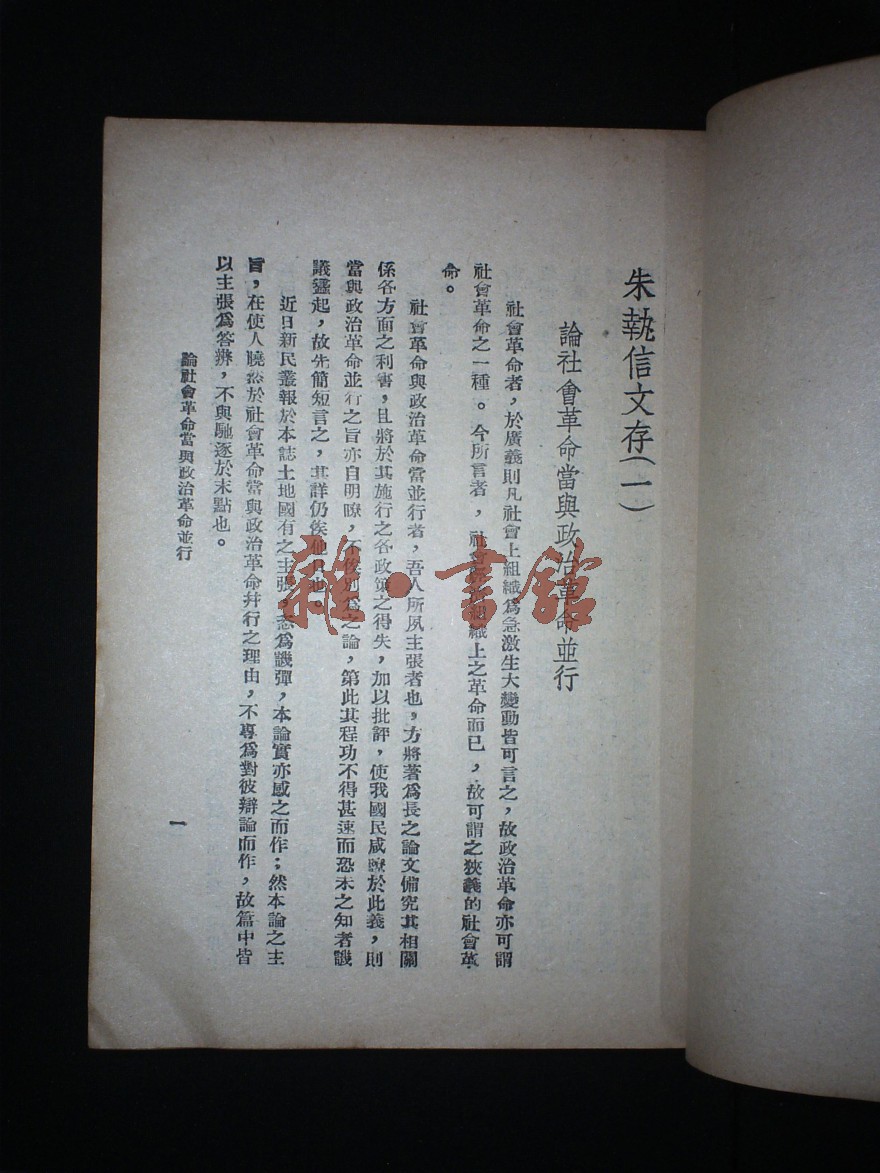 朱執信文存(一)
論社會革命當與政治革命並行
社會革命者，於廣義則凡社會上組織爲急激生大變動皆可言之，故政治革命亦可謂
社會革命之一種。今所言者，社會組織上之革命而已，故可謂之狹義的社會革
命。
社會革命與政治革命當並行者，吾人所夙主張者也，方將著爲長之論文備究其相關
係各方面之利害，且將於其施行之各政策之得失，加以批評，使我國民咸瞭於此義，則
當與政治革命並行之旨亦自明瞭，不俟別爲之論，第此其程功不得甚速而恐未之知者譏
議蠭起，故先簡短言之，其詳仍俟他日也。
近日新民叢報於本誌土地國有之主張，恣爲譏彈，本論實亦感之而作；然本論之主
旨，在使人曉然於社會革命當與政治革命并行之理由，不專爲對彼辯論而作，故篇中皆
以主張爲答辨，不與馳逐於末點也。
論社會革命當與政治革命並行
一
雜·書館